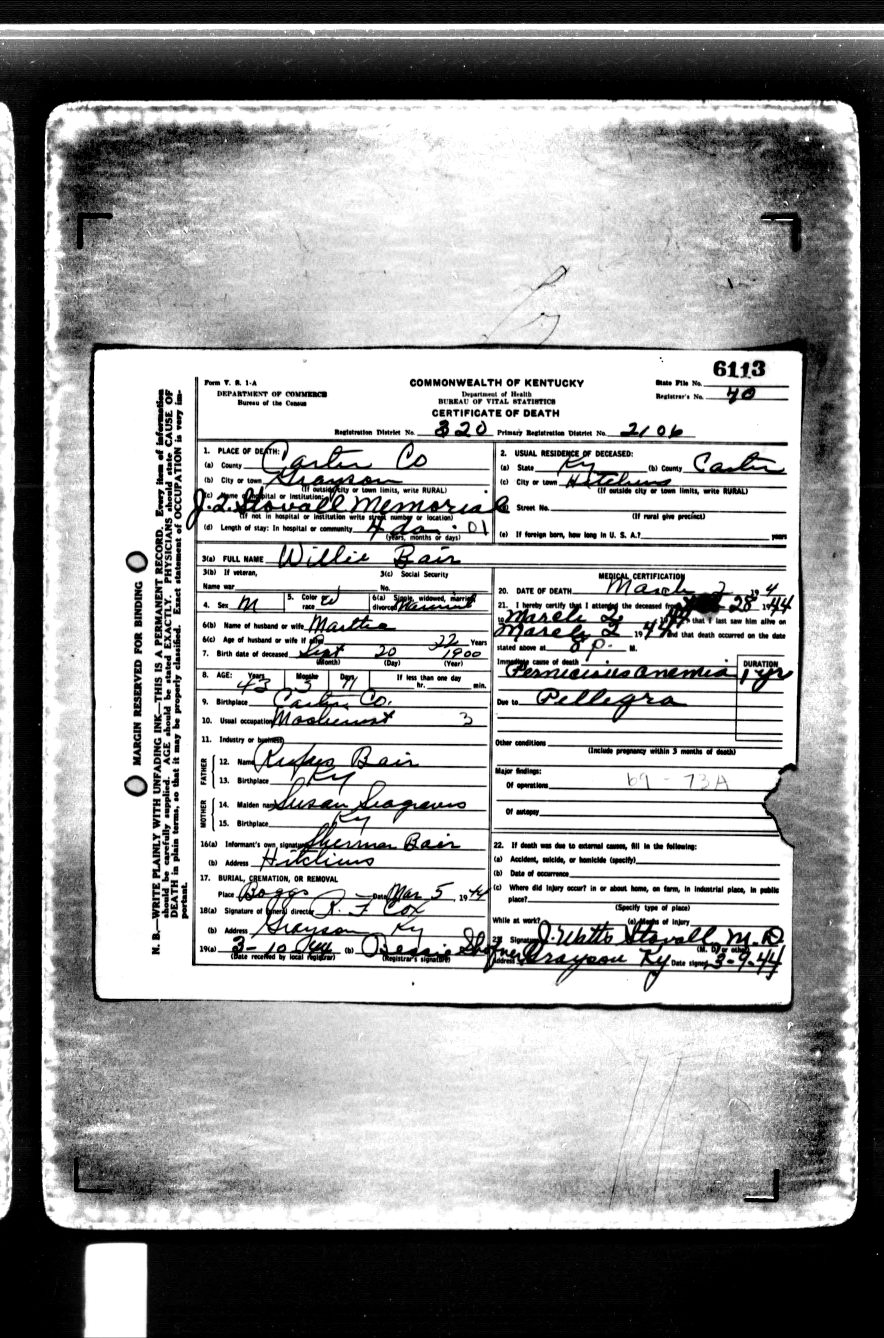 6113
Form V. S. 1-A
COMMONWEALTH OF KENTUCKY
State File No.
DEPARTMENT OF COMMERCE
Department of Health
Registrar's No. 40
Bureau of the Census
BUREAU OF VITAL STATISTICS
CERTIFICATE OF DEATH
Registration District No. 320 Primary Registration District No. 2106
MARGIN RESERVED FOR BINDING
N. B.—WRITE PLAINLY WITH UNFADING INK—THIS IS A PERMANENT RECORD. Every item of information
should be carefully supplied. AGE should be stated EXACTLY. PHYSICIANS should state CAUSE OF
DEATH in plain terms, so that it may be properly classified. Exact statement of OCCUPATION is very im-
portant.
1. PLACE OF DEATH:
(a) County Carter Co
(b) City or town Grayson
(If outside city or town limits, write RURAL)
(c) Name of hospital or institution:
J. Q. Stovall Memorial
(If not in hospital or institution write street number or location)
(d) Length of stay: In hospital or community 4 da 01
(years, months or days)
2. USUAL RESIDENCE OF DECEASED:
(a) State Ky (b) County Carter
(c) City or town Hitchins
(If outside city or town limits, write RURAL)
(d) Street No.
(If rural give precinct)
(e) If foreign born, how long in U. S. A.? years
3(a) FULL NAME Willie Bair
3(b) If veteran,
Name war
3(c) Social Security
No.
4. Sex M
5. Color or race W
6(a) Single, widowed, married, divorced Married
6(b) Name of husband or wife Martha
6(c) Age of husband or wife if alive 22 Years
7. Birth date of deceased Sept 20 1900
(Month) (Day) (Year)
8. AGE: Years Months Days If less than one day
43 5 hr. min.
9. Birthplace Carter Co.
10. Usual occupation Machinist 3
11. Industry or business
FATHER
12. Name Rufus Bair
13. Birthplace Ky
MOTHER
14. Maiden name Susan Seagraves
15. Birthplace Ky
16(a) Informant's own signature Sherman Bair
(b) Address Hitchins
17. BURIAL, CREMATION, OR REMOVAL
Place Boggs Date Mar 5, 1944
18(a) Signature of funeral director R. F Cox
(b) Address Grayson Ky
19(a) 3-10-44 (b) Bessie
(Date received by local registrar) (Registrar's signature)
MEDICAL CERTIFICATION
20. DATE OF DEATH March 2 194
21. I hereby certify that I attended the deceased from 28 1944
to March 2, 1944 that I last saw him alive on
March 2 1944 and that death occurred on the date
stated above at 8 P. M.
Immediate cause of death
Pernicious anemia
DURATION
1 yr
Due to Pellegra
Other conditions
(Include pregnancy within 3 months of death)
Major findings:
Of operations 69 - 73A
Of autopsy
22. If death was due to external causes, fill in the following:
(a) Accident, suicide, or homicide (specify)
(b) Date of occurrence
(c) Where did injury occur? in or about home, on farm, in industrial place, in public
place?
(Specify type of place)
While at work? (e) Means of injury
23. Signature J. Watts Stovall M. D.
(M. D. or other)
Address Grayson Ky Date signed 3-9-44